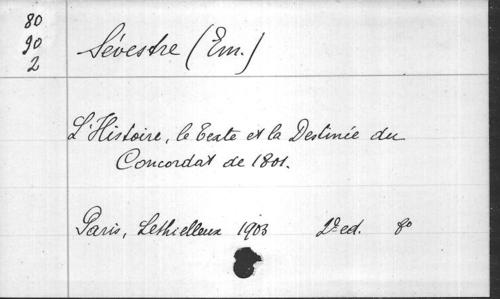 80
90
2
Sévestre (Em.)
L'Histoire, le Texte et la Destinée du
Concordat de 1801.
Paris, Lethielleux 1903 2e ed. 8o